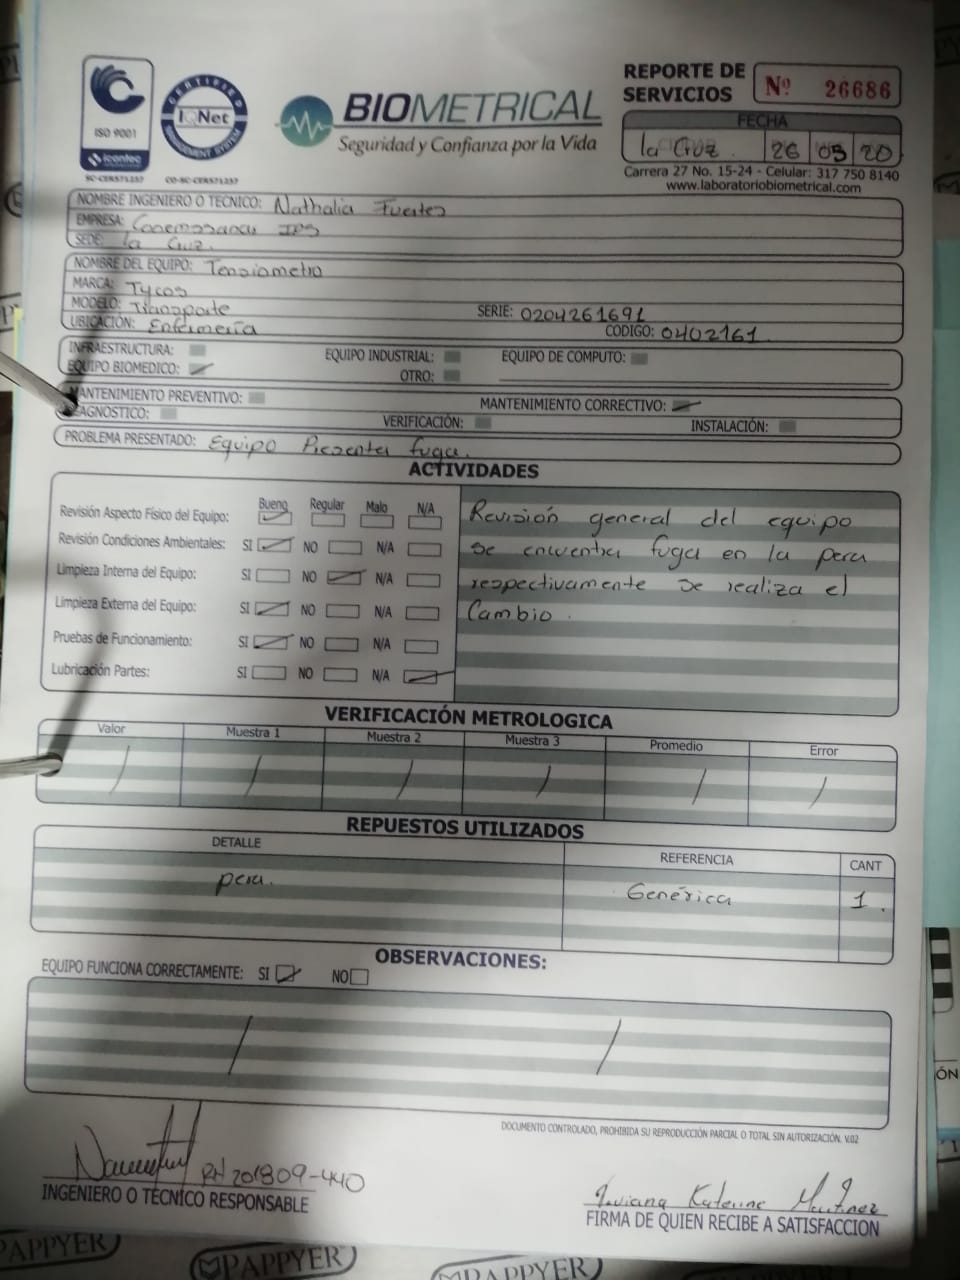 ISO 9001
icontec
SC-CER571257
CERTIFIED
IQNet
MANAGEMENT SYSTEM
CO-SC-CER571257
BIOMETRICAL
Seguridad y Confianza por la Vida
REPORTE DE SERVICIOS Nº 26686
FECHA
la Cruz. 26 05 20
Carrera 27 No. 15-24 - Celular: 317 750 8140
www.laboratoriobiometrical.com
NOMBRE INGENIERO O TÉCNICO: Nathalia Fuertes
EMPRESA: IPS
SEDE: la Cruz.
NOMBRE DEL EQUIPO: Tensiometro
MARCA: Tycos
MODELO: Transporte SERIE: 0204261691
UBICACIÓN: Enfermería CODIGO: 0402161
INFRAESTRUCTURA: EQUIPO INDUSTRIAL: EQUIPO DE COMPUTO:
EQUIPO BIOMEDICO: OTRO:
MANTENIMIENTO PREVENTIVO: MANTENIMIENTO CORRECTIVO:
DIAGNOSTICO: VERIFICACIÓN: INSTALACIÓN:
PROBLEMA PRESENTADO: Equipo Presenta fuga.
ACTIVIDADES
Bueno Regular Malo N/A
Revisión Aspecto Físico del Equipo:
Revisión Condiciones Ambientales: SI NO N/A
Limpieza Interna del Equipo: SI NO N/A
Limpieza Externa del Equipo: SI NO N/A
Pruebas de Funcionamiento: SI NO N/A
Lubricación Partes: SI NO N/A
Revisión general del equipo
se encuentra fuga en la pera
respectivamente se realiza el
Cambio.
VERIFICACIÓN METROLOGICA
Valor Muestra 1 Muestra 2 Muestra 3 Promedio Error
/ / / / / /
REPUESTOS UTILIZADOS
DETALLE REFERENCIA CANT
pera. Genérica 1.
OBSERVACIONES:
EQUIPO FUNCIONA CORRECTAMENTE: SI NO
/ /
DOCUMENTO CONTROLADO, PROHIBIDA SU REPRODUCCIÓN PARCIAL O TOTAL SIN AUTORIZACIÓN. V.02
RH 201809-440
INGENIERO O TÉCNICO RESPONSABLE
Viviana Katerine Martinez
FIRMA DE QUIEN RECIBE A SATISFACCION
PAPPYER
PAPPYER
PAPPYER